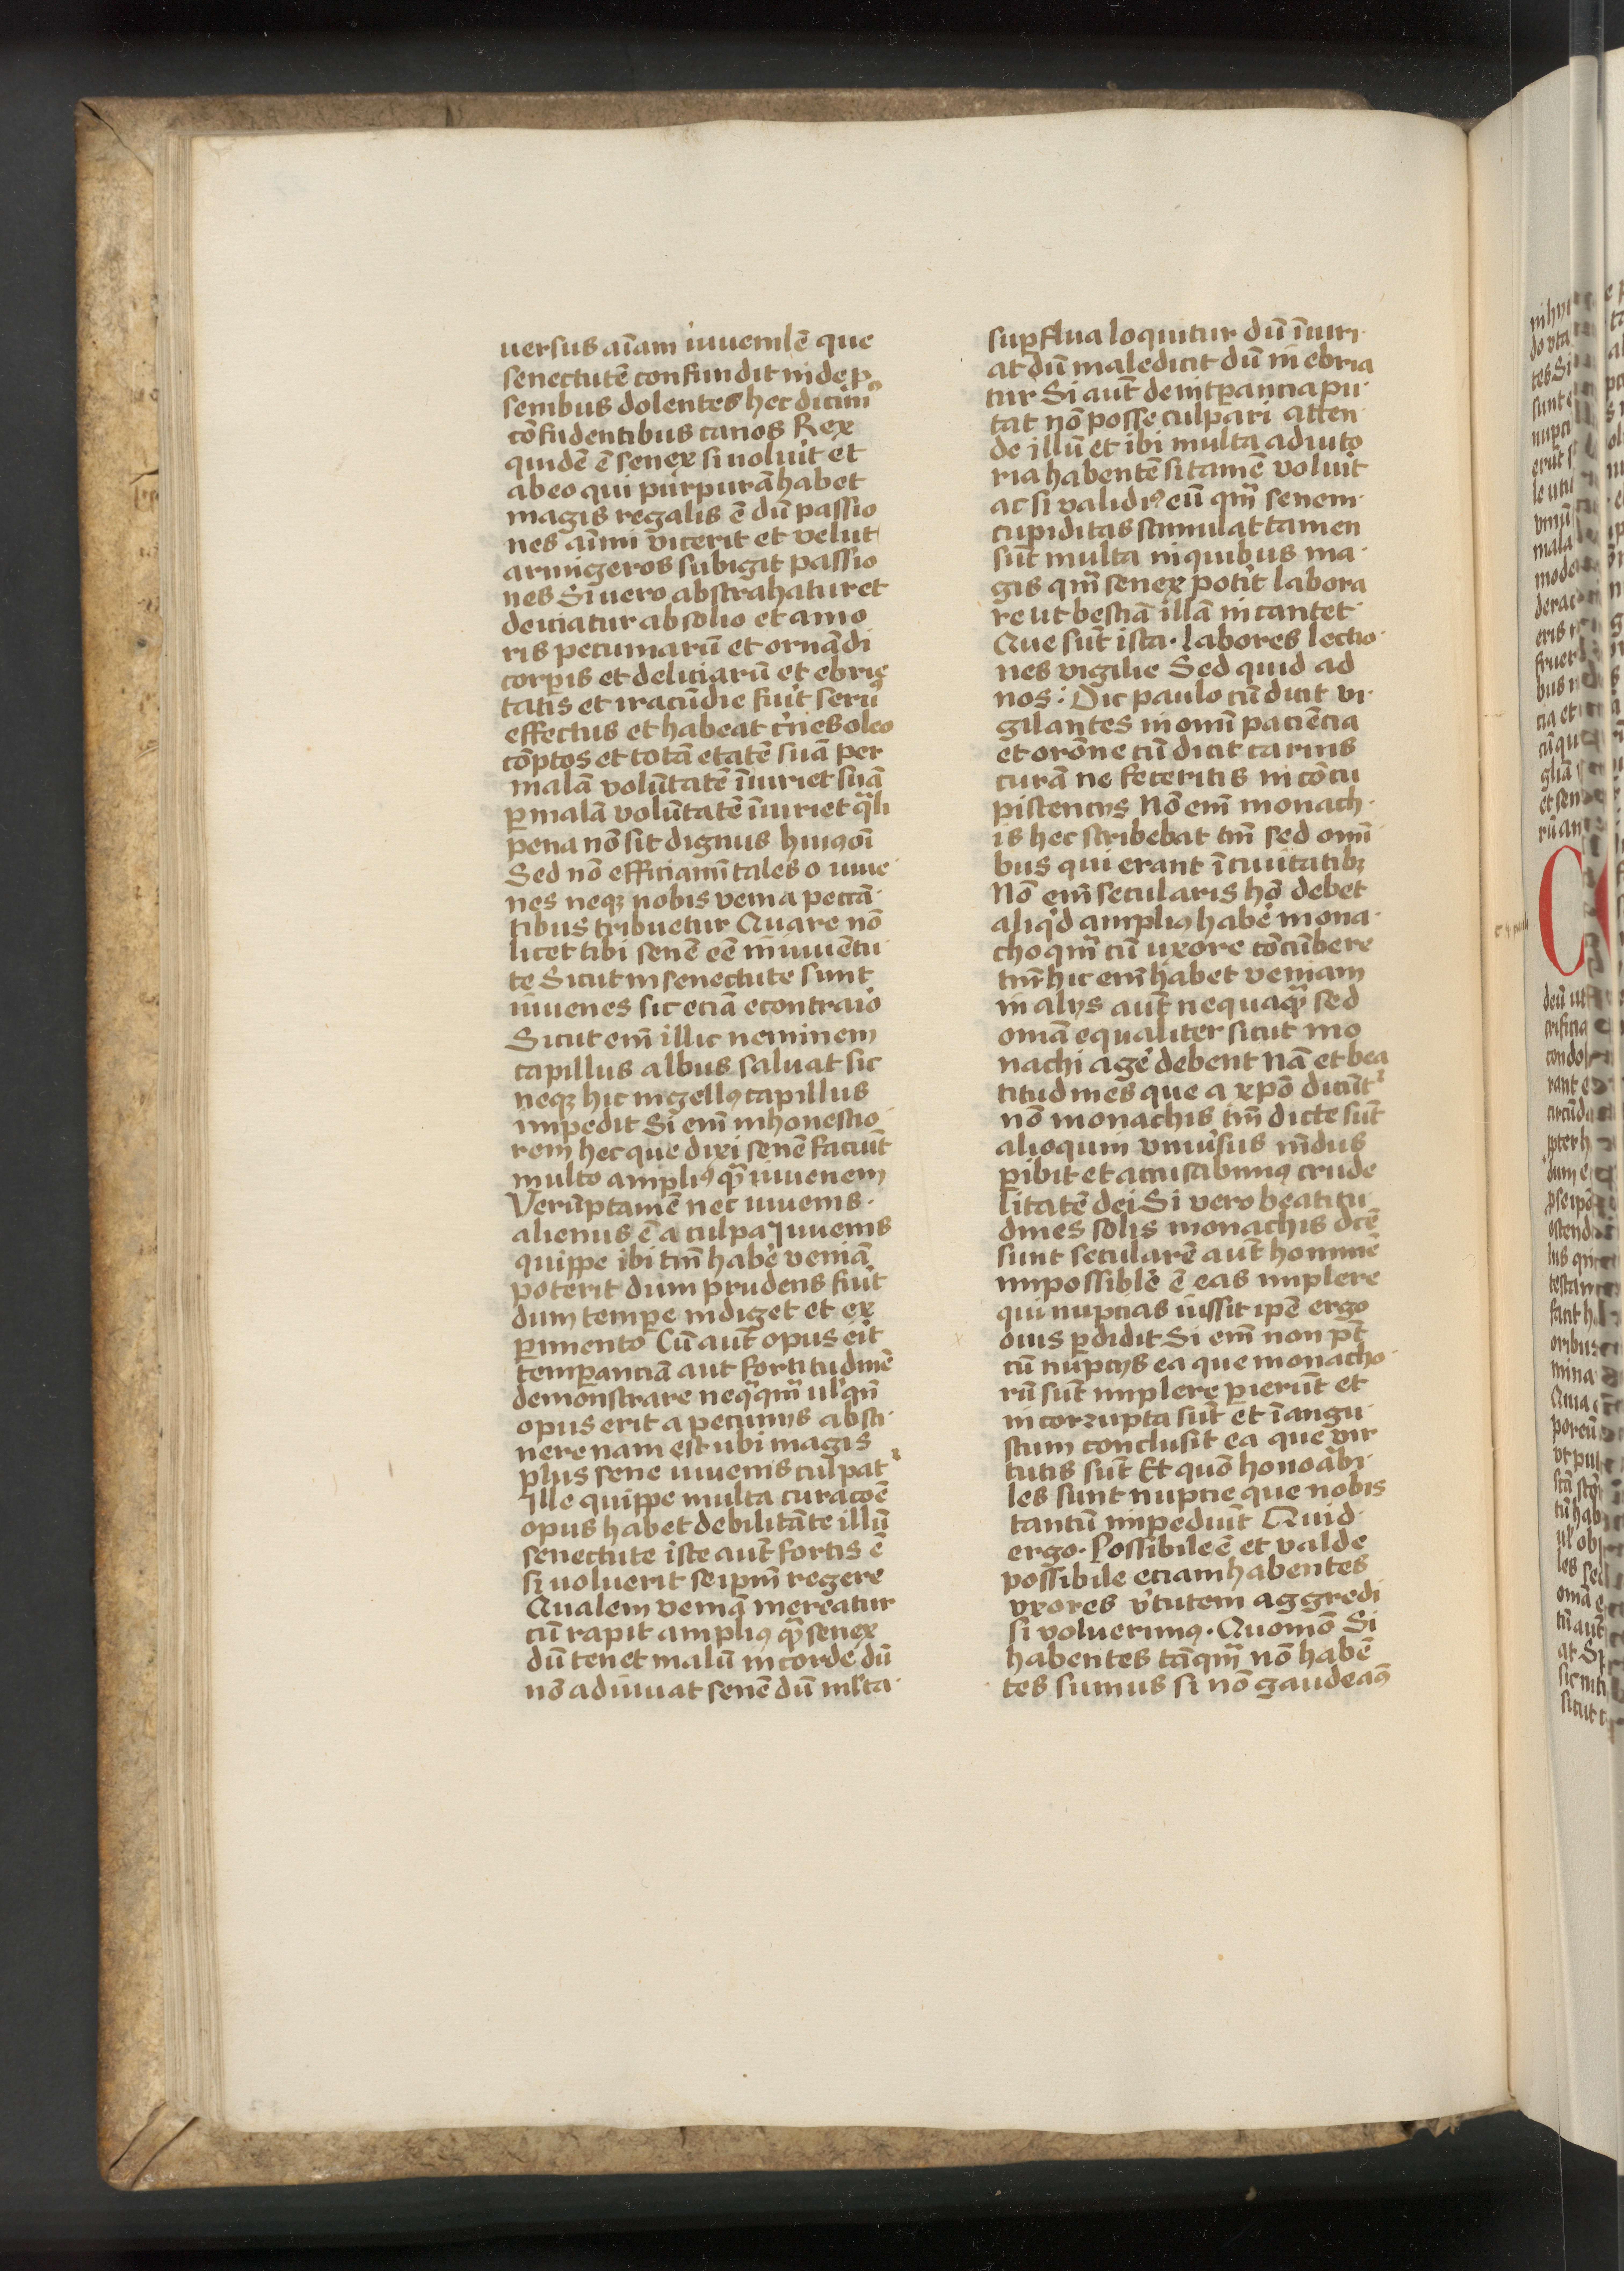 uersus aīam iuuenilē que
senectutē confundit inde p̱
senibus dolentes hec dicimꝰ
cōfidentibus canos Rex
quidē ē senex si uoluīt et
ab eo qui purpurā habet
magis regalis ē dū passio
nes aīmi vicerit et velut
armigeros subigit passio
nes Si uero abstrahatur et
deiciatur ab solio et amo
ris pecuniarū et ornādi
corꝑis et deliciarū et ebrie
tatis et iracūdie fuīt seruꝰ
effectus et habeat c̄nes oleo
cōptos et totā etatē suā per
malā volūtatē īiuriet suā
ꝑ malā volūtatē īiuriet q̄li
pena nō sit dignus huiꝰmōi
Sed nō efficiamī tales o iuue
nes neqꝫ nobis venia peccā
tibus tribuetur Quare nō
licet tibi senē eē in iuuētu
te Sicut in senectute sunt
iuuenes sic eciā econtraio
Sicut em̄ illic neminem
capillus albus saluat sic
neqꝫ hic nigellꝰ capillus
impedit Si em̄ inhonestio
rem hec que dixi senē faciūt
multo ampliꝰ qᷓ iuuenem
Verūptamē nec iuuenis
alienus ē a culpa Iuuenis
quippe ibi tm̄ habe᷑ veniā
poterit dum prudens fuīt
dum tempe indiget et ex
ꝑimento Cū aut̄ opus eīt
temꝑanciā aut fortitudinē
demonstrare neqᷓqm̄ ul'qn̄
opus erit a pecuniis absti
nere nam est ubi magis
plus sene iuuenis culpat᷑
Ille quippe multa curacōē
opus habet debilitāte illū
senectute iste aut̄ fortis ē
si uoluerit seipm̄ regere
Qualem veniā mereatur
cū rapit ampliꝰ qᷓ senex
dū tenet malū in corde dū
nō adiuuat senē dū ml'ta
suꝑflua loquitur dū īiuri
at dū maledicit dū inebria
tur Si aut̄ de intꝑancia pu
tat nō posse culpari atten
de illū et ibi multa adiuto
ria habentē si tamē voluīt
ac si validiꝰ eū qm̄ senem
cupiditas stimulat tamen
sūt multa in quibus ma
gis qm̄ senex potīt labora
re ut bestiā illā incantet
Que sūt ista. labores lectio
nes vigilie Sed quid ad
nos: Dic paulo cū dicit vi
gilantes in omī paciēcia
et orōne cū dicit carnis
curā ne feceritis in cōcu
piscenciis Nō em̄ monach
is hec scribebat tm̄ sed omī
bus qui erant ī ciuitatibꝫ
Nō em̄ secularis hō debet
aliqͥd ampliꝰ habe᷑ mona
cho qm̄ cū uxore cōcūbere
tm̄ hic em̄ habet veniam
in aliis aut̄ nequaqᷓ sed
omā equaliter sicut mo
nachi age᷑ debent Nā et bea
titudines que a xp̄o dicūt᷑
nō monachis tm̄ dicte sūt
alioquin vniu᷑sus mūdus
ꝑibit et accusabimꝰ crude
litatē dei Si vero beatitu
dines solis monachis dcē
sunt secularē aut̄ hominē
impossible ē eas implere
qui nupcias iussit ip̄e ergo
oīus ꝑdidit Si em̄ non pt̄
cū nupciis ea que monacho
rū sūt implere ꝑierūt et
in corrupta sūt et ī angu
stum conclusit ea que vir
tutis sūt Et quō honoābi
les sunt nupcie que nobis
tantū impediūt Quid
ergo. Possibile ē et valde
possibile eciam habentes
vxores v᷑tutem aggredi
si voluerimꝰ. Quomō Si
habentes tāqm̄ nō habē
tes sumus si nō gaudeaꝰ